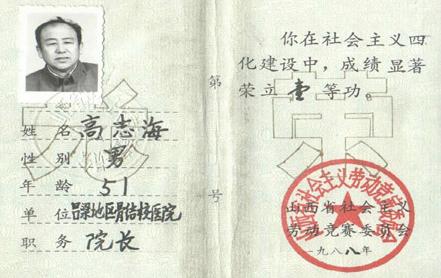 姓名 高志海
性别 男
年龄 51
单位 吕梁地区骨结核医院
职务 院长
第
号
你在社会主义四
化建设中，成绩显著
荣立壹等功。
山西省社会主义
劳动竞赛委员会
一九八八年
山西省社会主义劳动竞赛委员会